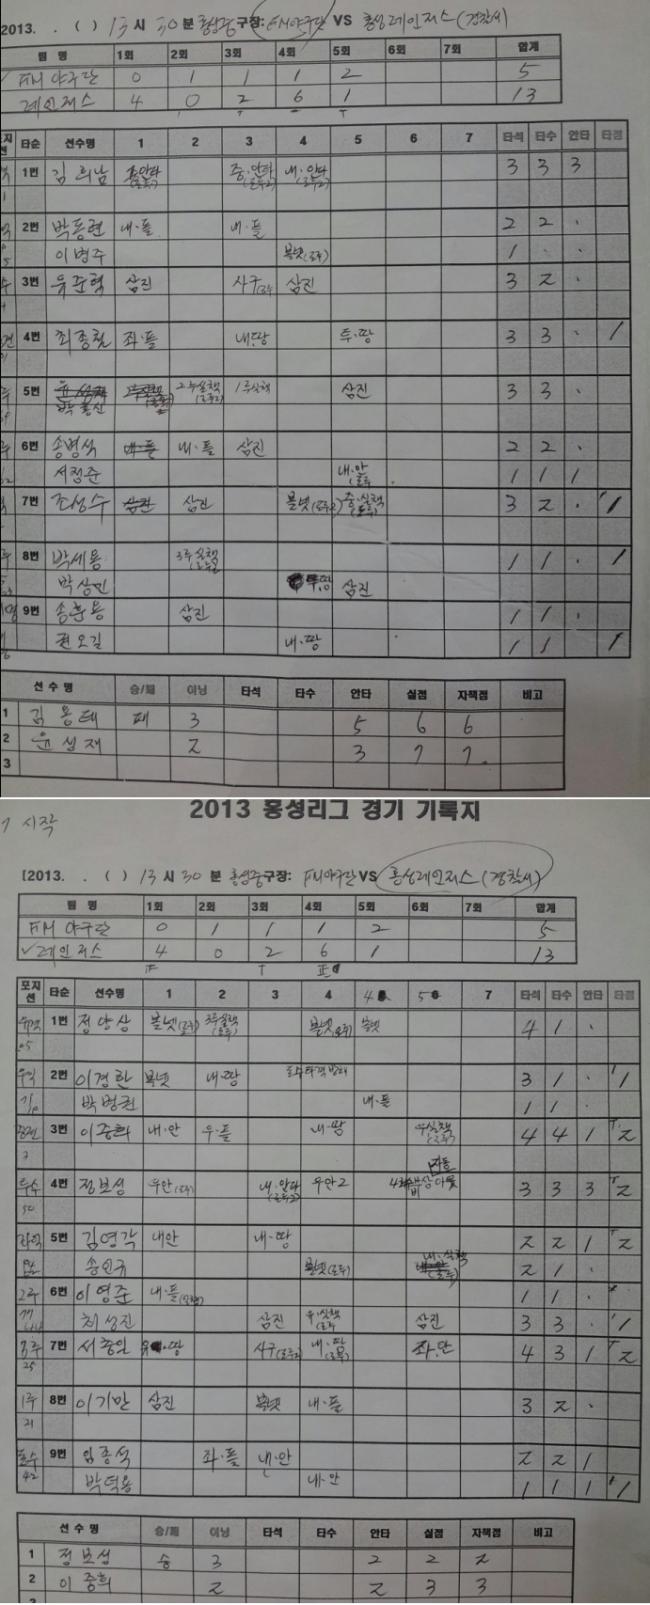 2013. . ( ) 13시 30분 홍성중구장: FM야구단 VS 홍성레인저스(경찰서)
팀 명 1회 2회 3회 4회 5회 6회 7회 합계
FM 야구단 0 1 1 1 2 5
레인저스 4 0 2 6 1 13
타순 선수명 1 2 3 4 5 6 7 타석 타수 안타 타점
1번 김희남 중.안타 내.안타 3 3 3
2번 박동현 내.플 내.플 2 2 .
이병주 볼넷 1 . .
3번 유준혁 삼진 사구 삼진 3 2 .
4번 최종필 좌.플 내.땅 투.땅 3 3 . 1
5번 2루실책 1루실책 삼진 3 3 .
6번 송병석 내.플 내.플 삼진 2 2 .
서정준 내.안 1 1 1
7번 조성수 삼진 삼진 볼넷 중.실책 3 2 . 1
8번 박세용 3루실책 1 1 . 1
박상민 땅 삼진
9번 송훈용 삼진 1 1 .
권오길 내.땅 1 1 1
선 수 명 승/패 이닝 타석 타수 안타 실점 자책점 비고
1 김용태 패 3 5 6 6
2 윤성재 2 3 7 7
3
시작
2013 홍성리그 경기 기록지
[2013. . ( ) 13시 30분 홍성중구장: FM야구단 VS 홍성레인저스(경찰서)
팀 명 1회 2회 3회 4회 5회 6회 7회 합계
FM 야구단 0 1 1 1 2 5
레인저스 4 0 2 6 1 13
포지션 타순 선수명 1 2 3 4 4 5 7 타석 타수 안타 타점
1번 정양상 볼넷 3루실책 볼넷 볼넷 4 1 .
2번 이경환 볼넷 내.땅 포수타격방해 3 1 . 1
박병권 내.플 1 1 .
3번 이중희 내.안 우.플 내.땅 실책 4 4 1 2
투수 4번 정보성 우안 내.안타 우안2 3 3 3 2
50
좌익 5번 김영각 내안 내.땅 2 2 1 2
송인규 볼넷 내.실책 2 1 .
6번 이영준 내.플 1 1 .
최성진 삼진 우.실책 삼진 3 3 . 1
7번 서종일 땅 사구 내.땅 좌.안 4 3 1 2
25
1루 8번 이기만 삼진 볼넷 내.플 3 2 .
21
포수 9번 임종석 좌.플 내.안 2 2 1
42 박덕용 내.안 1 1 1 1
선 수 명 승/패 이닝 타석 타수 안타 실점 자책점 비고
1 정보성 승 3 2 2 2
2 이중희 2 2 3 3